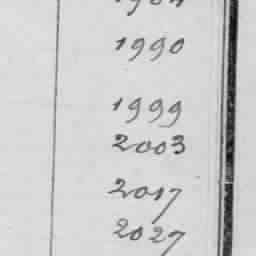 1990
1999
2003
2017
2027